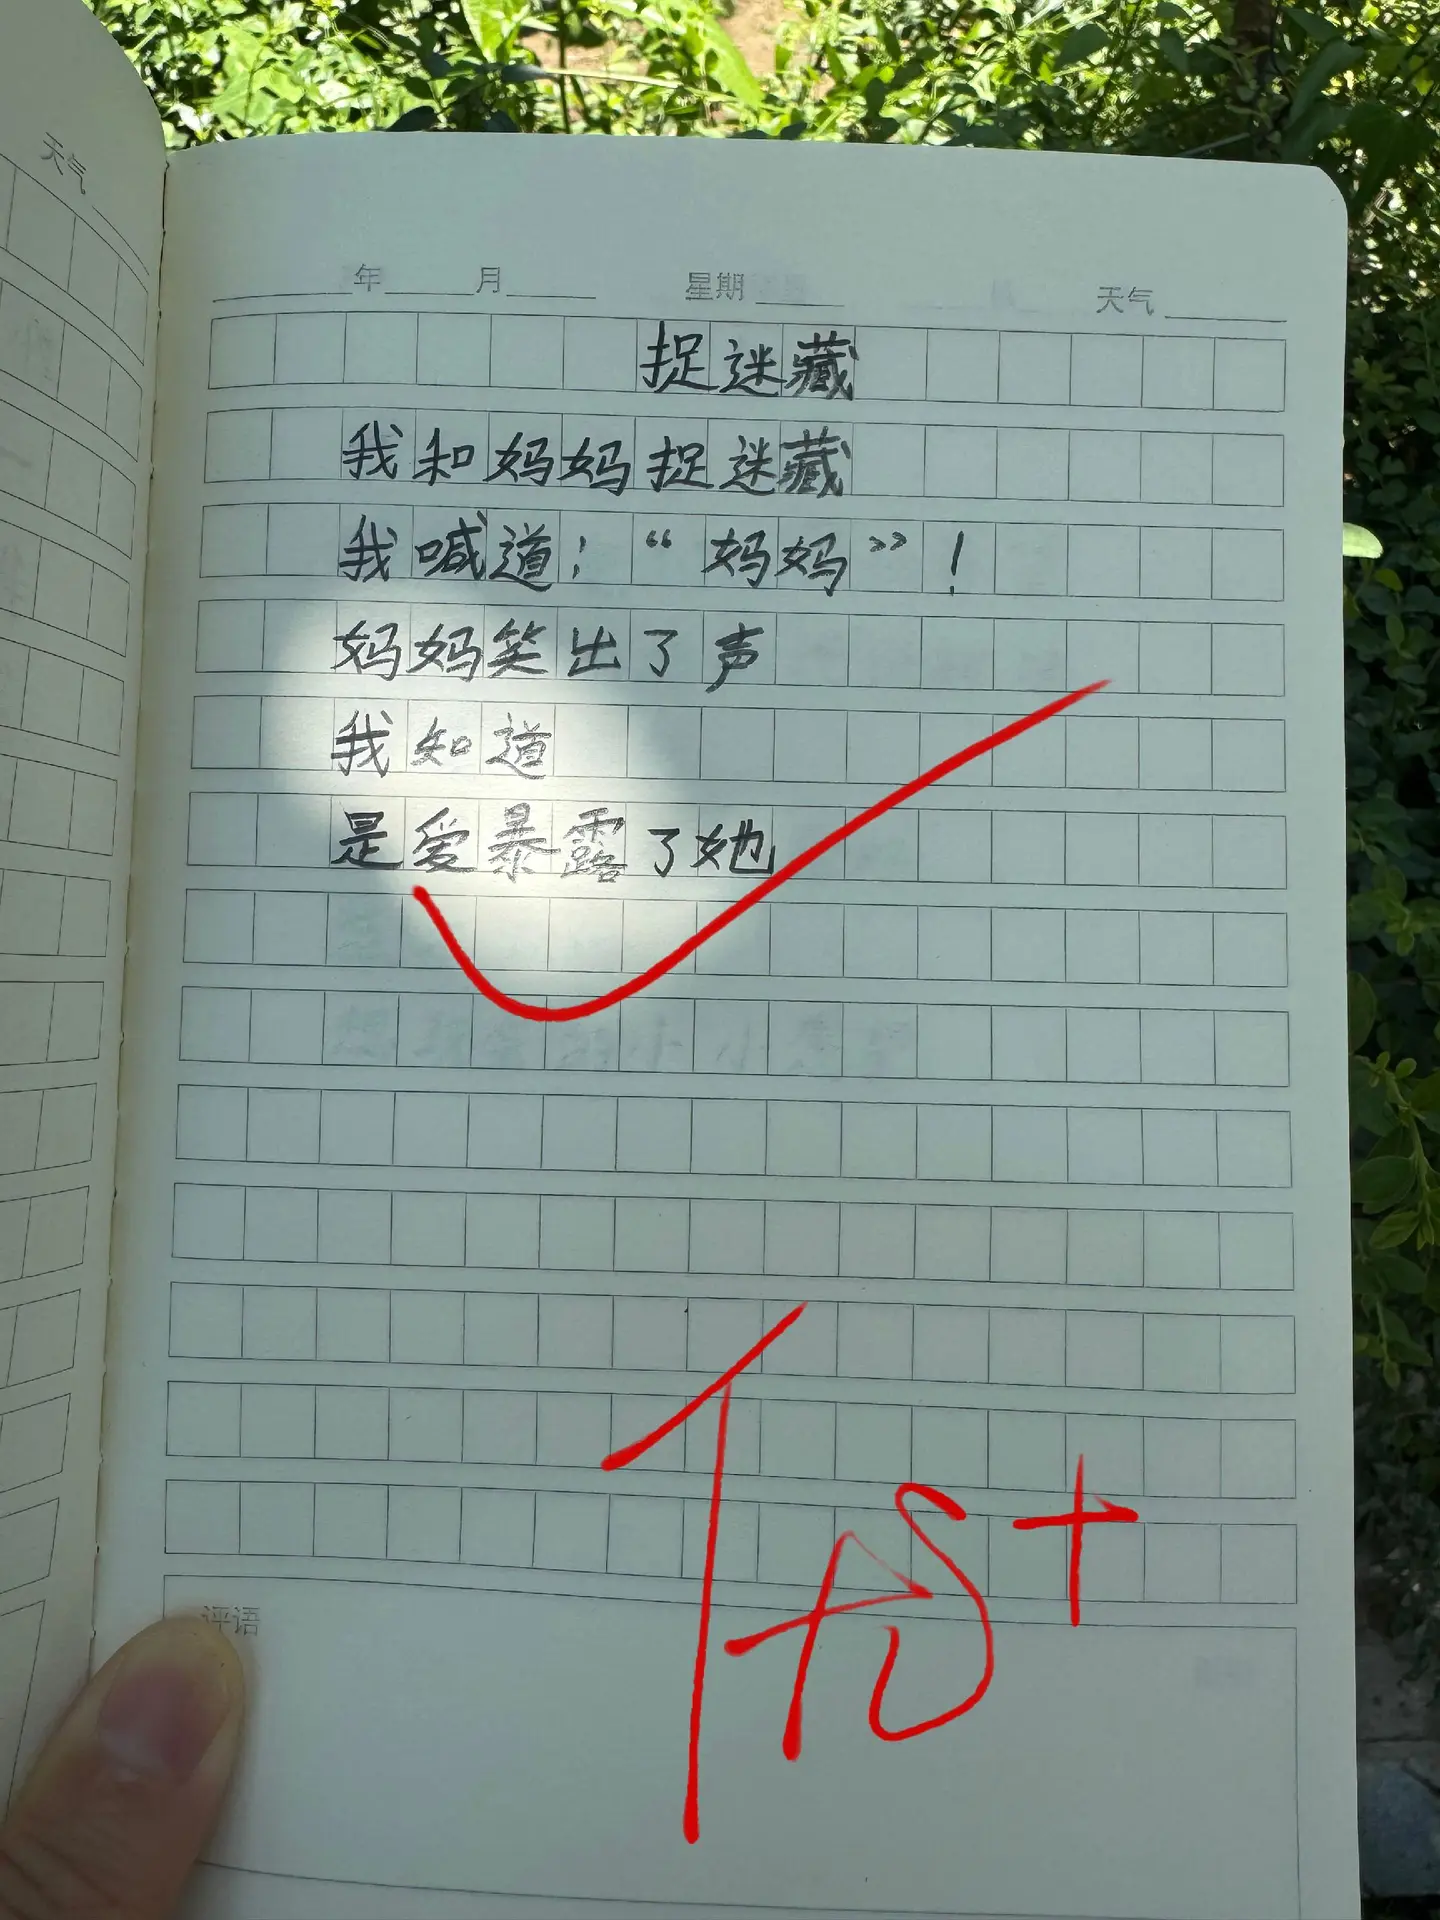 天气
年 月 星期 天气
捉迷藏
我和妈妈捉迷藏
我喊道：“妈妈”！
妈妈笑出了声
我知道
是爱暴露了她
评语